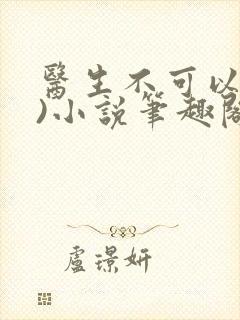 醫生不可以
)小說筆趣閣
盧璟妍